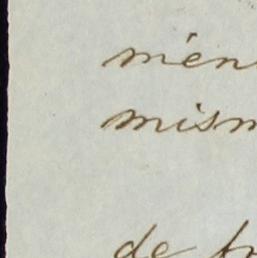 mén
mism
de fr